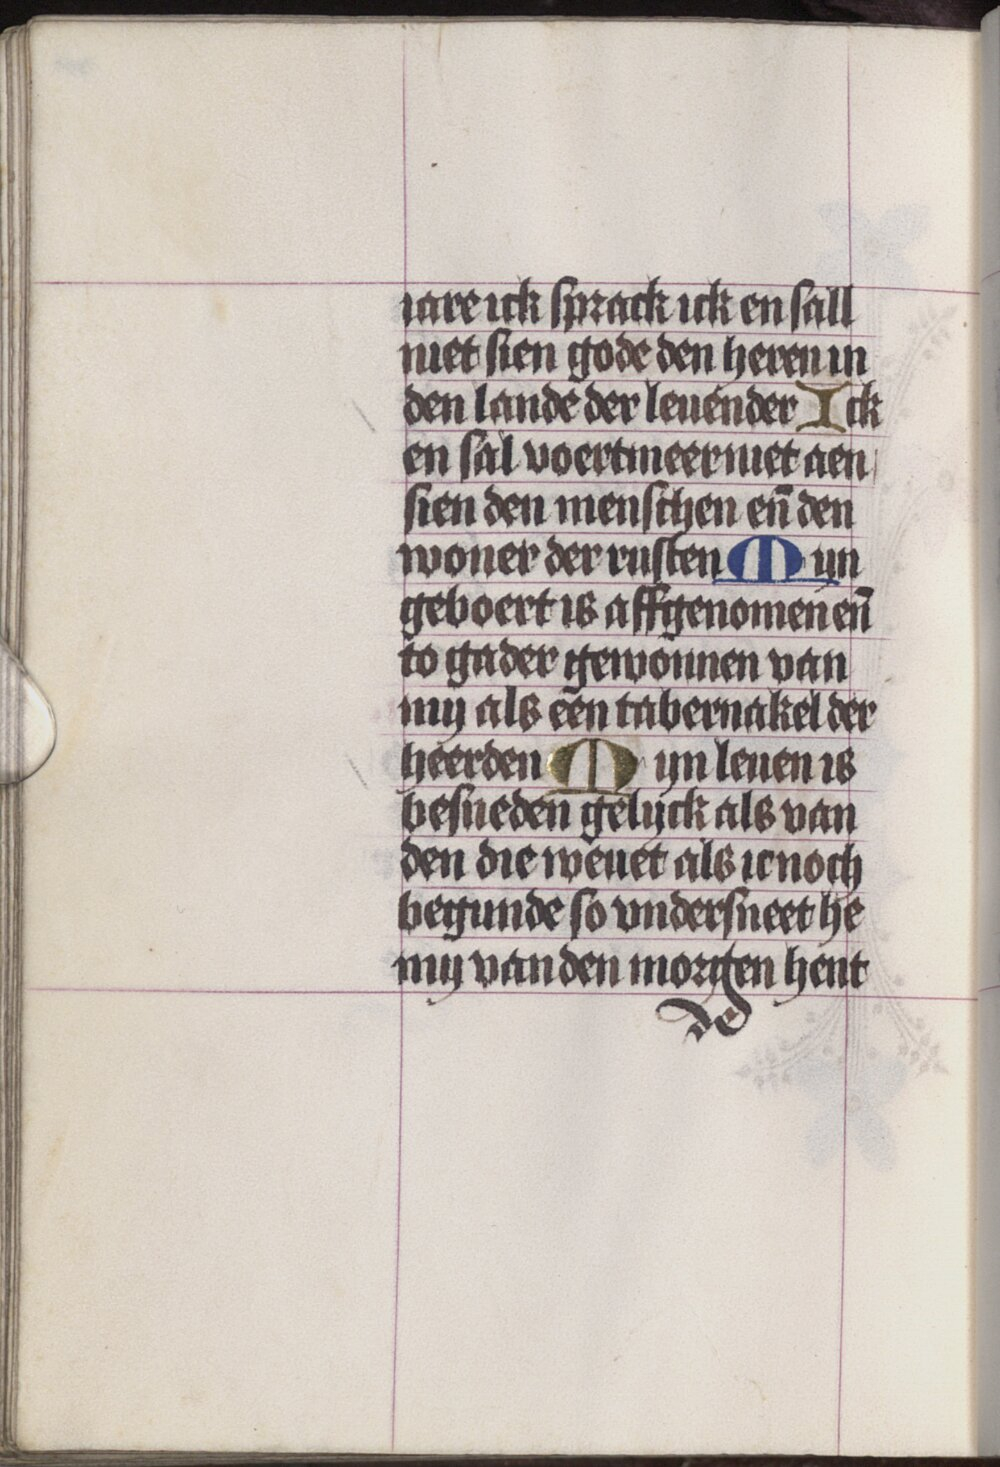 iare ick sprack ick en sall
niet sien gode den heren in
den lande der leuender Ick
en sal voertmeer niet aen
sien den menschen en̄ den
woner der rusten Myn
geboert is affgenomen en̄
to gader gewonnen van
my als een tabernakel der
heerden Myn leuen is
besneden gelyck als van
den die weuet als ic noch
begunde so vndersneet he
my van den morgen hent
de